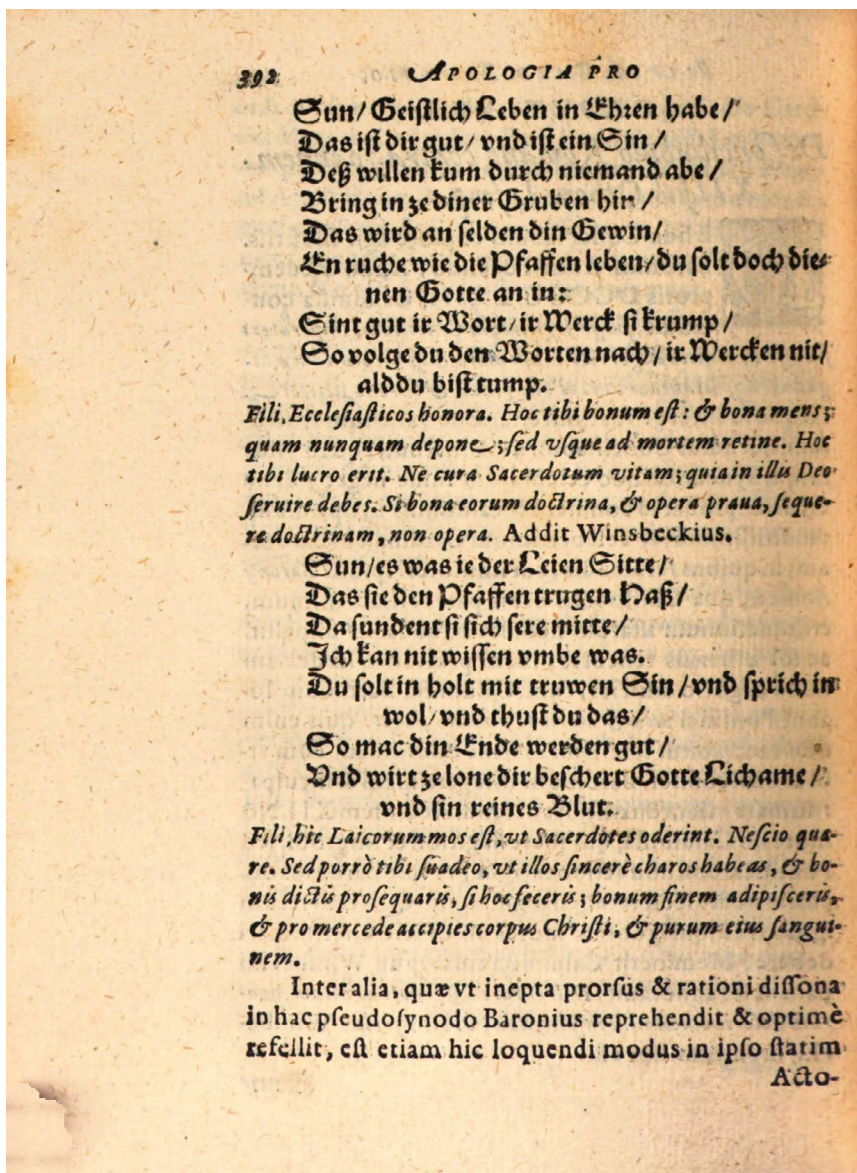 392 APOLOGIA PRO
Sun/ Geiſtlich Leben in Ehren habe/
Das iſt dir gut/ vnd iſt ein Sin/
Deß willen kum durch niemand abe/
Bring in ze diner Gruben hin/
Das wird an ſelden din Gewin/
En ruche wie die Pfaffen leben/ du ſolt doch die-
nen Gotte an in:
Sint gut ir Wort/ ir Werck ſi krump/
So volge du den Worten nach/ ir Wercken nit/
ald du biſt tump.
Fili, Eccleſiaſticos honora. Hoc tibi bonum eſt: & bona mens;
quam nunquam depone; ſed vſque ad mortem retine. Hoc
tibi lucro erit. Ne cura Sacerdotum vitam; quia in illis Deo
ſeruire debes. Si bona eorum doctrina, & opera praua, ſeque-
re doctrinam, non opera. Addit Winsbeckius.
Sun/ es was ie der Leien Sitte/
Das ſie den Pfaffen trugen Haß/
Da ſundent ſi ſich ſere mitte/
Ich kan nit wiſſen vmbe was.
Du ſolt in holt mit truwen Sin/ vnd ſprich in
wol/ vnd thuſt du das/
So mac din Ende werden gut/
Vnd wirt ze lone dir beſchert Gotte Lichame/
vnd ſin reines Blut.
Fili, hic Laicorum mos eſt, vt Sacerdotes oderint. Neſcio qua-
re. Sed porrò tibi ſuadeo, vt illos ſincerè charos habeas, & bo-
nis dictis proſequaris, ſi hoc feceris; bonum finem adipiſceris,
& pro mercede accipies corpus Chriſti, & purum eius ſangui-
nem.
Inter alia, quæ vt inepta prorſus & rationi diſſona
in hac pſeudoſynodo Baronius reprehendit & optimè
refellit, eſt etiam hic loquendi modus in ipſo ſtatim
Acto-